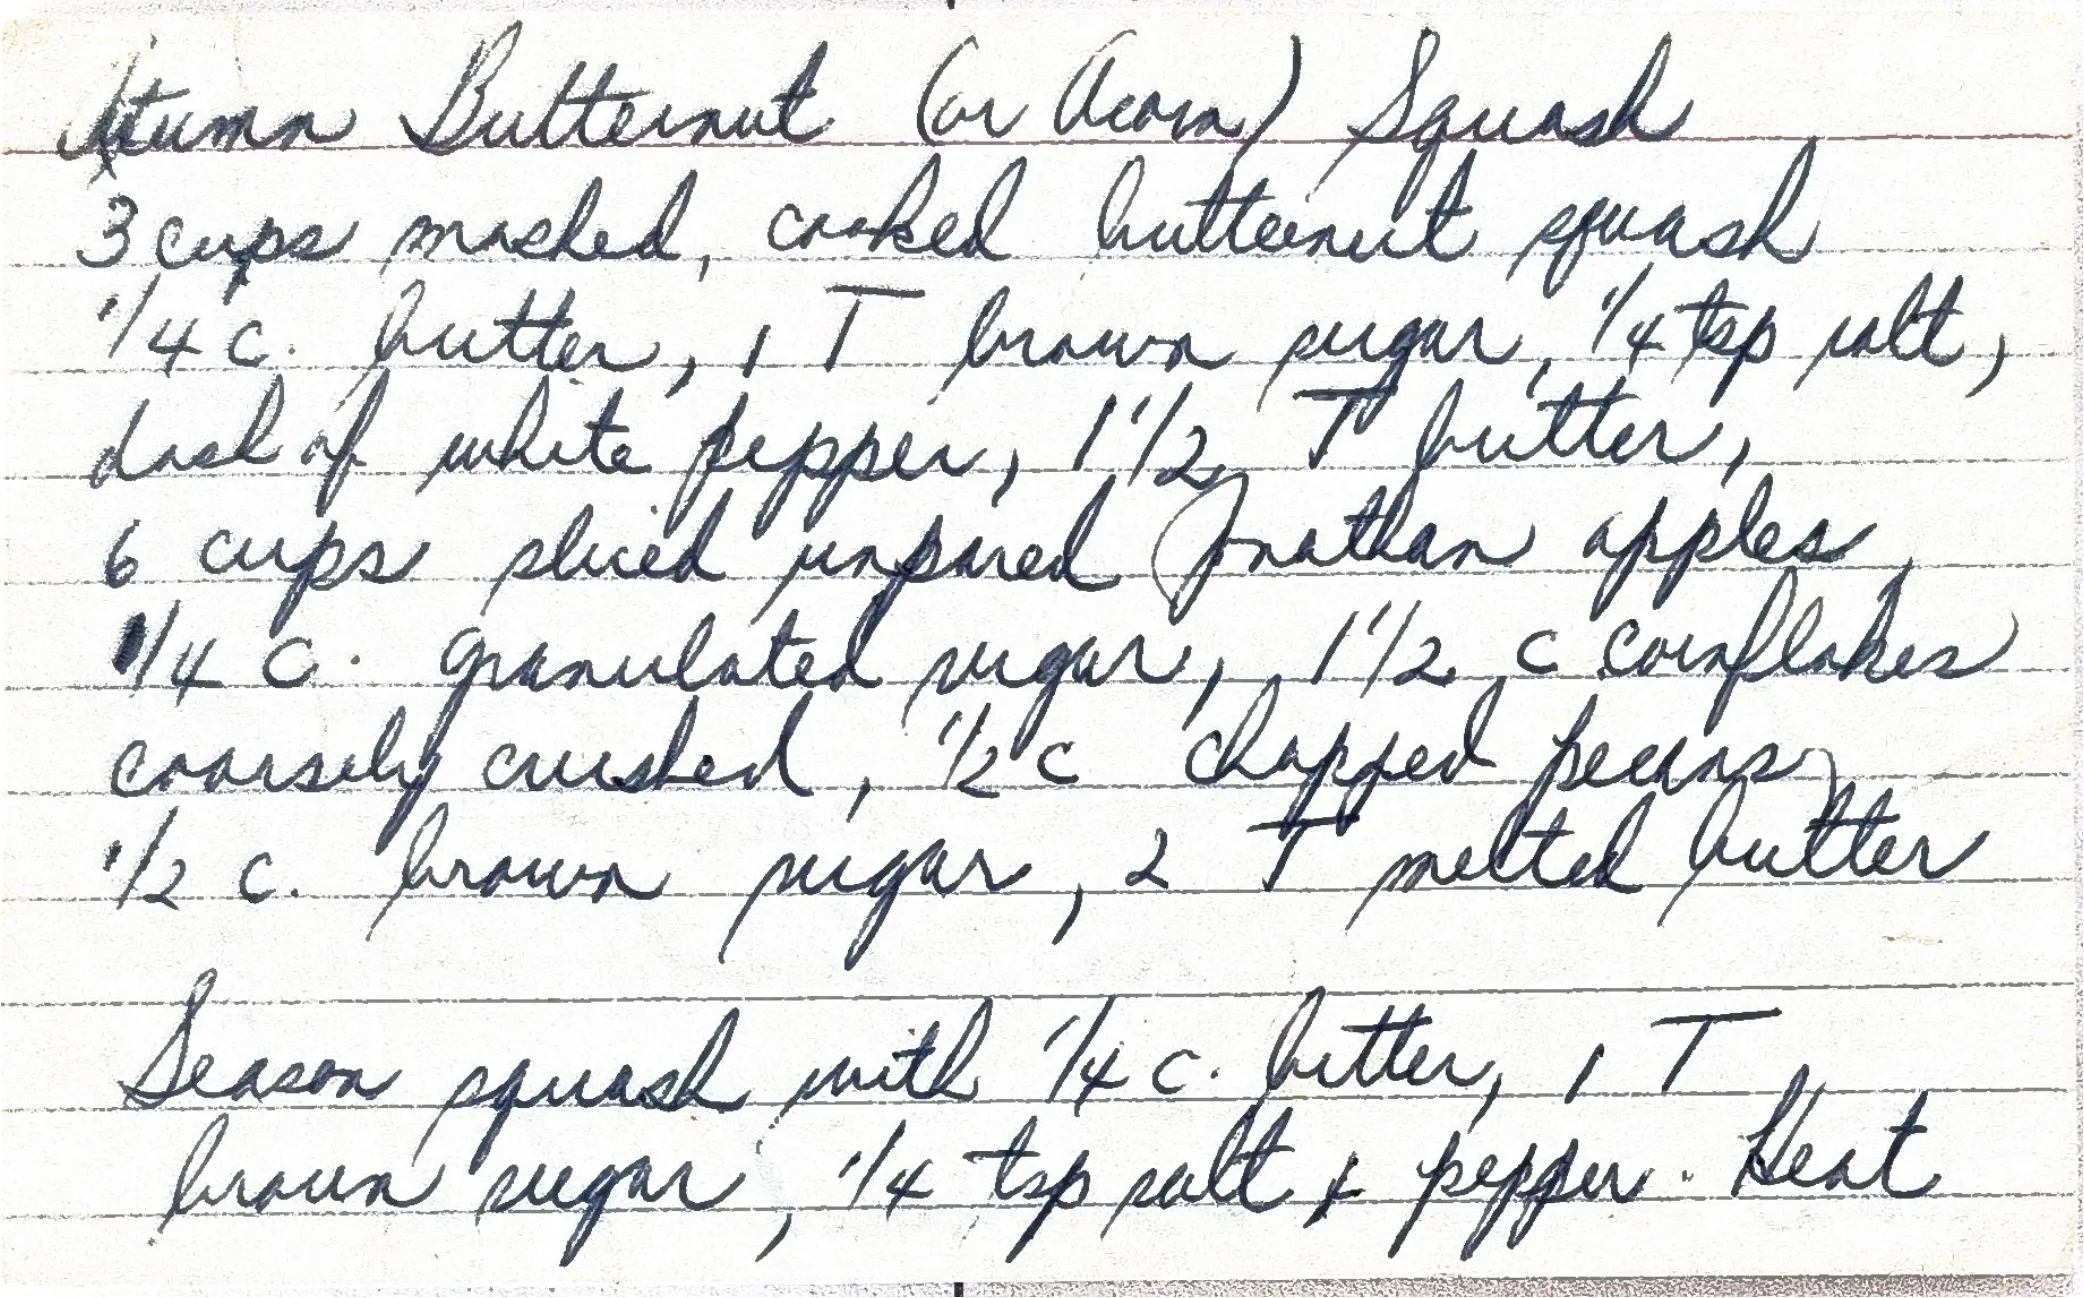 Autumn Butternut (or Acorn) Squash
3 cups mashed, cooked butternut squash
1/4 c. butter, 1 T brown sugar, 1/4 tsp salt,
dash of white pepper, 1 1/2 T butter,
6 cups sliced unpared Jonathan apples,
1/4 c. granulated sugar, 1 1/2 c cornflakes
coarsely crushed, 1/2 c chopped pecans,
1/2 c. brown sugar, 2 T melted butter
Season squash with 1/4 c. butter, 1 T
brown sugar, 1/4 tsp salt & pepper. Heat